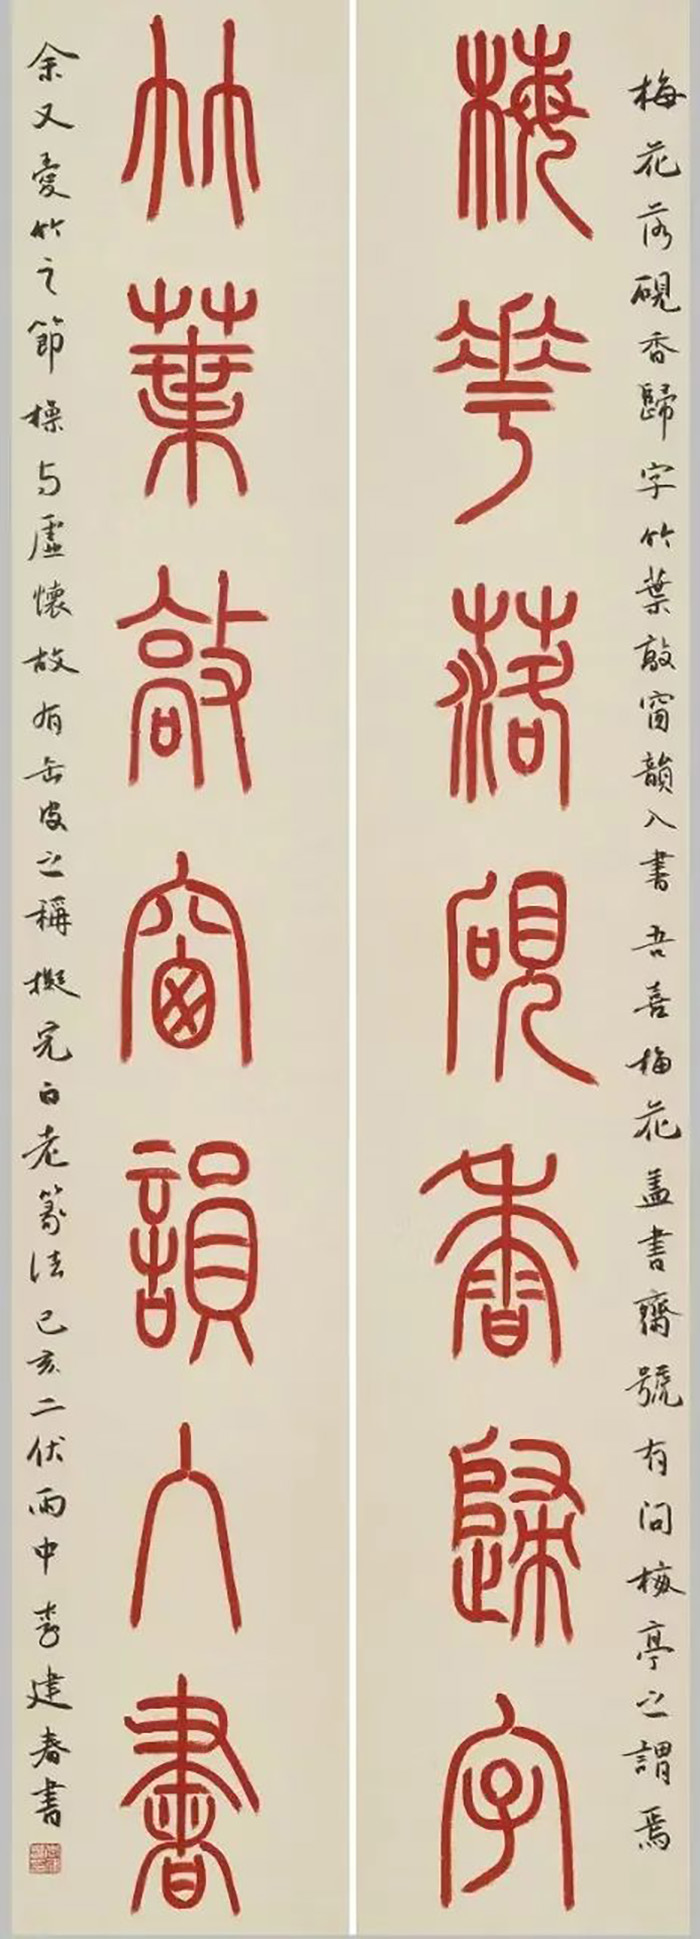 梅花落硯香歸字竹葉敲窗韻入書吾喜梅花盖書齋號有问梅亭之謂焉
梅華落硯香歸字
竹葉敲窗韻入書
余又愛竹之節操与虛懷故有之稱擬完白老篆法己亥二伏雨中李建春書